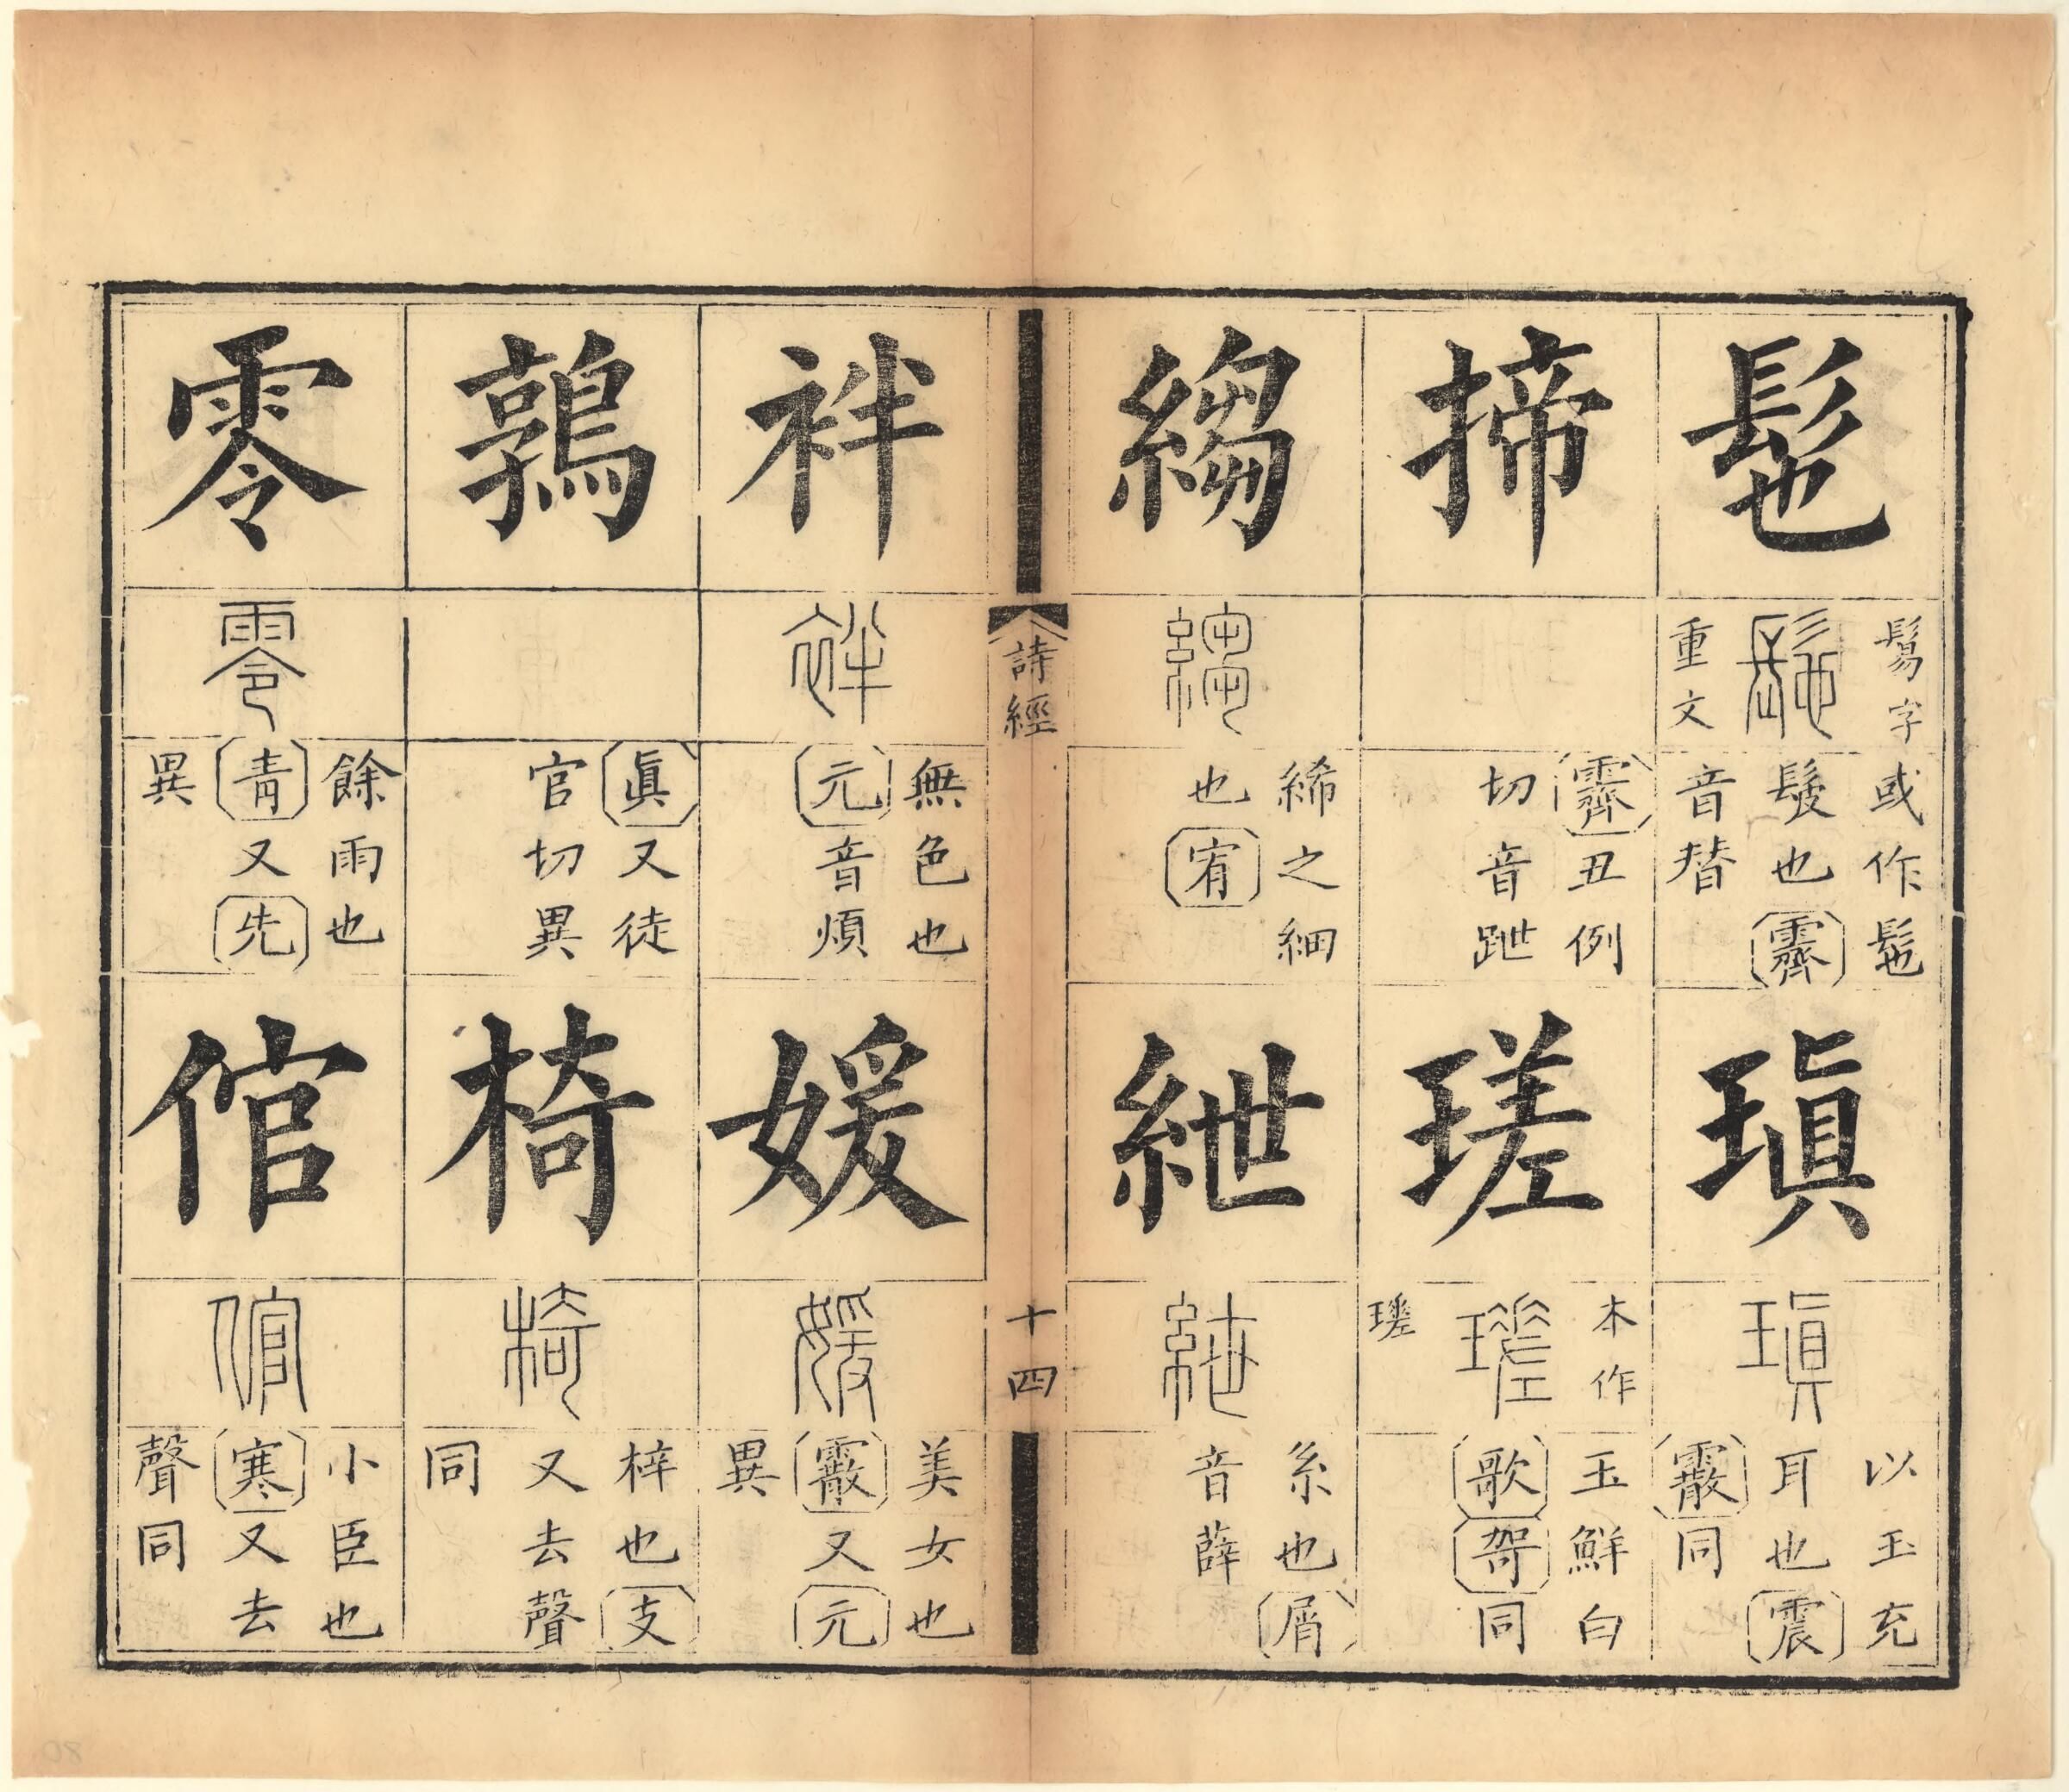 髢
髢
鬄字
重文
或作髢
髮也霽
音替
瑱
瑱
以玉充
耳也震
霰同
揥
霽丑例
切音跇
瑳
瑳
本作
玉鮮白
歌哿同
縐
縐
絺之細
也宥
紲
紲
系也屑
音薛
詩經
十四
袢
袢
無色也
元音煩
媛
媛
美女也
霰又元
異
鶉
眞又徒
官切異
椅
椅
梓也支
又去聲
同
零
零
餘雨也
青又先
異
倌
倌
小臣也
寒又去
聲同